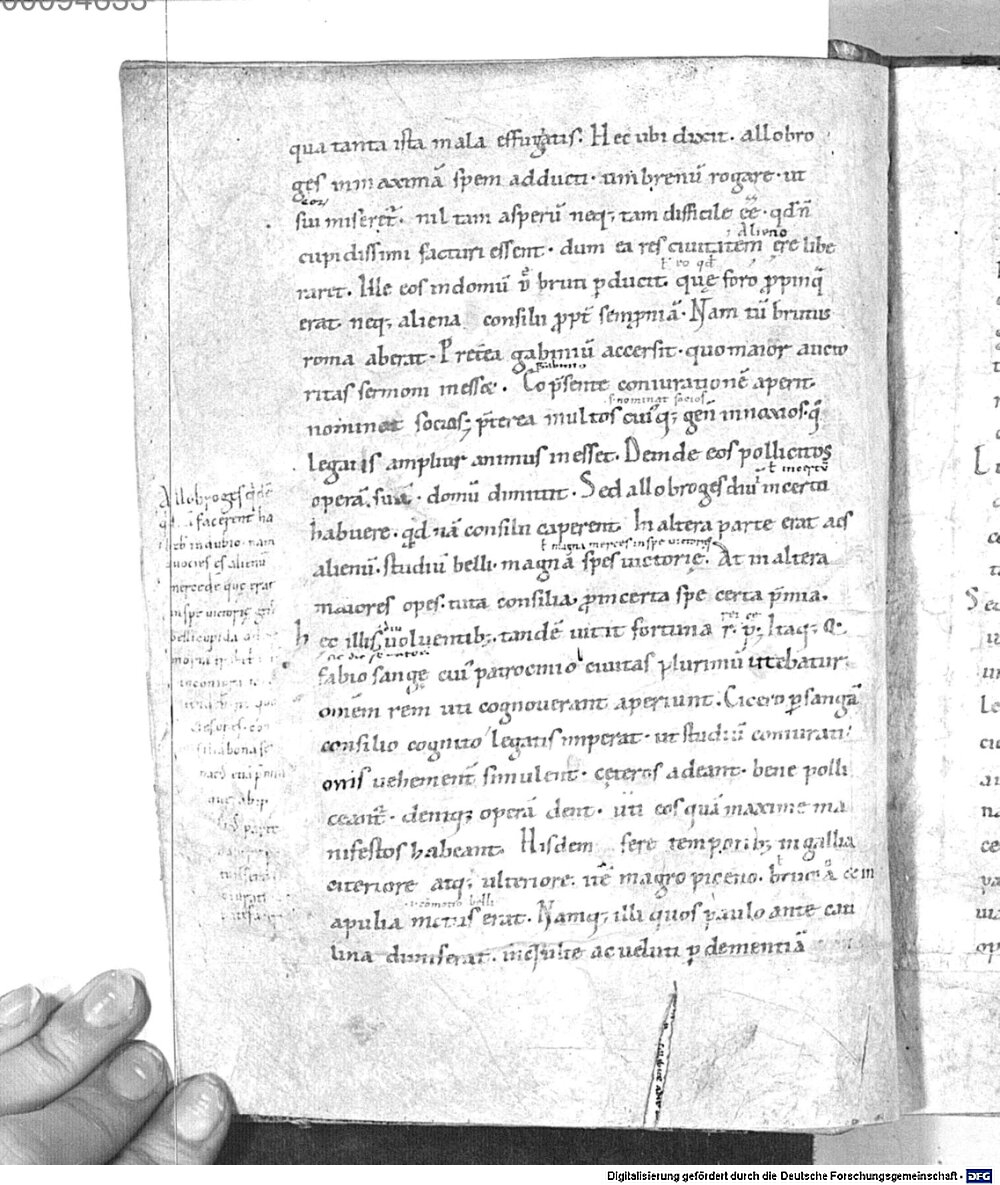 qua tanta ista mala effugiatis. Hec ubi dixit. allobro
ges in maximā spem adducti. umbrenū rogare. ut
sui miseret̄. nil tam asperū neq; tam difficile ēē. qđ n̄
cupidissimi facturi essent. dum ea res ciuitatem ere libe
raret. Ille eos in domū bruti ꝑducit. quę foro ꝓpinq̄
erat neq; aliena consilii ꝓpt̄ semꝓniā. Nam tū brutus
roma aberat. Pretea gabiniū accersit. quo maior aucto
ritas sermoni inesset. Eo p̄sente coniurationē aperit
nominat socios; p̄terea multos cuiq; geñ innoxios. q̄
legatis amplior animus inesset. Deinde eos pollicitos
operā suā. domū dimittit. Sed allobroges diu incerti
habuere. qđnā consilii caperent. In altera parte erat aes
alienū. studiū belli. magnā spes uictorię. At in altera
maiores opes. tuta consilia. ꝓ incerta spe certa p̄mia.
hec illis uoluentib; tandē uicit fortuna r. p. Itaq; Q.
fabio sange cui patrocinio ciuitas plurimū utebatur.
omēm rem uti cognouerant aperiunt. Cicero ꝑ sangā
consilio cognito legatis imperat. ut studiū coniurati
onis uehement̄ simulent. ceteros adeant. bene polli
ceant̄. deniq; operā dent. uti eos quā maxime ma
nifestos habeant. Hisdem fere temporib; in gallia
citeriore atq; ulteriore. itē in agro piceno. brutiā
apulia motus erat. Namq; illi quos paulo ante cati
lina dimiserat. inconsulte ac ueluti ꝑ dementiā
alieno
gabinio
s. nominat socios
ł magna merces in spe uictorię
.i. comotio belli
Allobroges
facerent
in dubio. nam
alienū
mercedē que erat
in spe uictorię
belli cupida
00094655
Digitalisierung gefördert durch die Deutsche Forschungsgemeinschaft - DFG